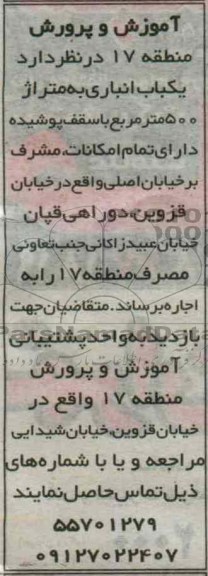 آموزش و پرورش
منطقه ۱۷ درنظردارد
یکباب انباری به متراژ
۵۰۰مترمربع باسقف پوشیده
دارای تمام امکانات، مشرف
برخیابان اصلی واقع درخیابان
قزوین، دوراهی قپان
خیابان عبیدزاکانی جنب تعاونی
مصرف منطقه ۱۷ رابه
اجاره برساند. متقاضیان جهت
بازدید به واحد پشتیبانی
آموزش و پرورش
منطقه ۱۷ واقع در
خیابان قزوین، خیابان شیدایی
مراجعه و یا با شماره‌های
ذیل تماس حاصل نمایند
۵۵۷۰۱۲۷۹
۰۹۱۲۷۰۲۲۴۰۷